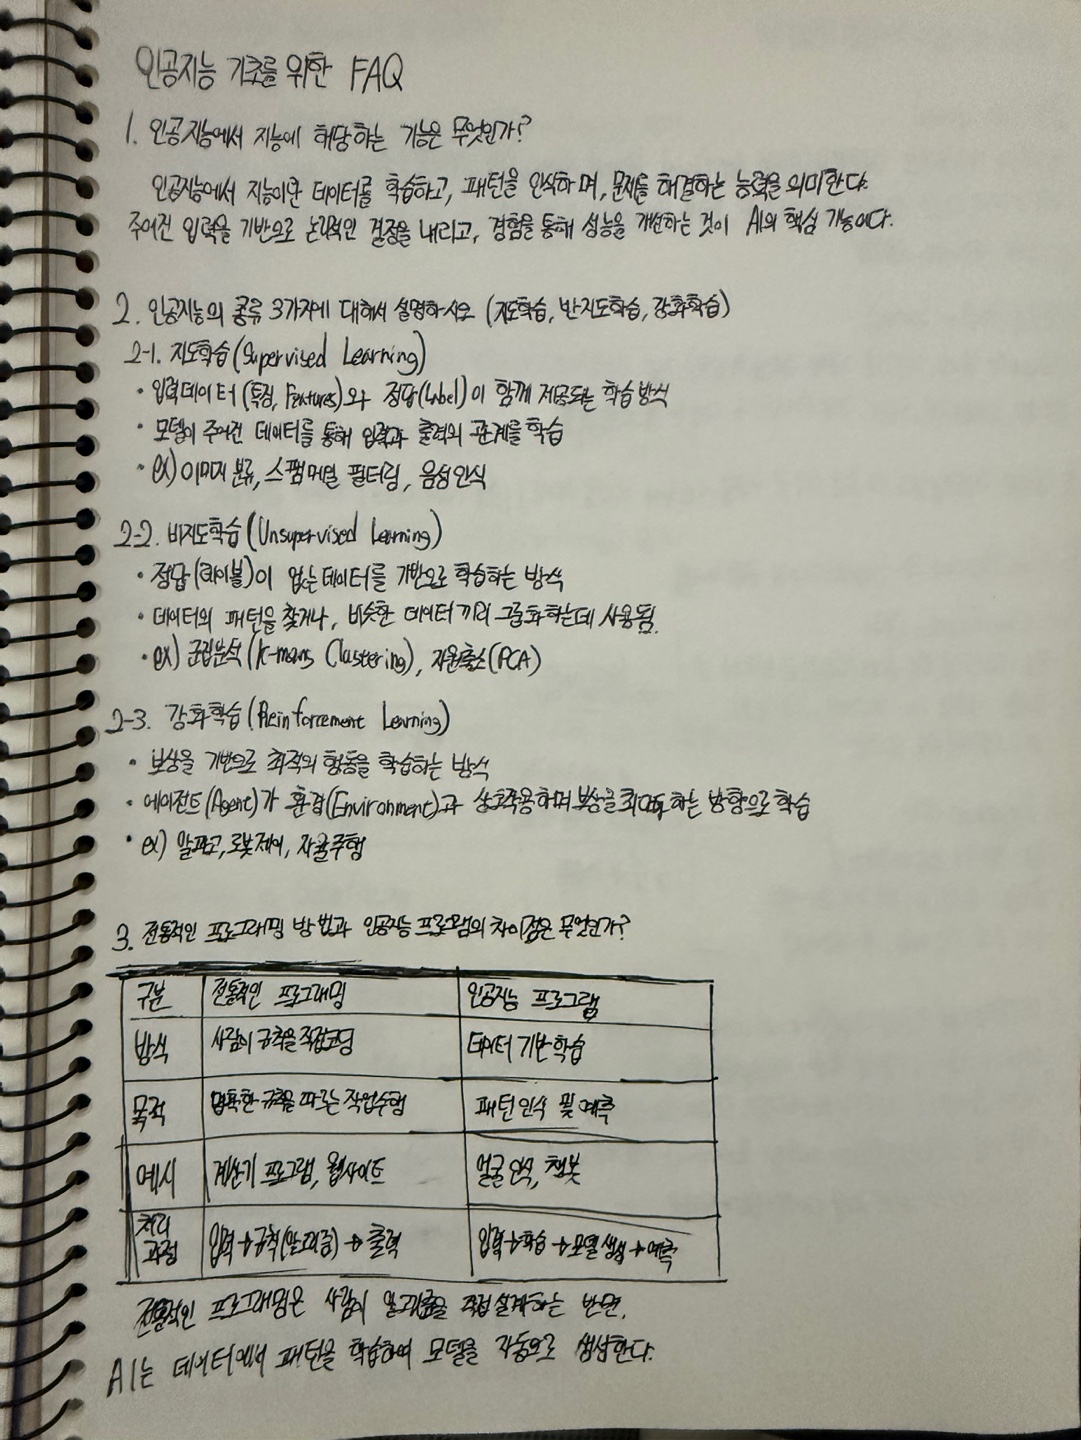 인공지능 기초를 위한 FAQ
1. 인공지능에서 지능에 해당하는 기능은 무엇인가?
인공지능에서 지능이란 데이터를 학습하고, 패턴을 인식하며, 문제를 해결하는 능력을 의미한다.
주어진 입력을 기반으로 논리적인 결정을 내리고, 경험을 통해 성능을 개선하는 것이 AI의 핵심 기능이다.
2. 인공지능의 종류 3가지에 대해서 설명하시오 (지도학습, 반지도학습, 강화학습)
2-1. 지도학습(Supervised Learning)
• 입력데이터(특징, Features)와 정답(Label)이 함께 제공되는 학습 방식
• 모델이 주어진 데이터를 통해 입력과 출력의 관계를 학습
• ex) 이미지 분류, 스팸메일 필터링, 음성인식
2-2. 비지도학습(Unsupervised Learning)
• 정답(레이블)이 없는 데이터를 기반으로 학습하는 방식
• 데이터의 패턴을 찾거나, 비슷한 데이터끼리 그룹화하는데 사용됨.
• ex) 군집분석(K-means Clustering), 차원축소(PCA)
2-3. 강화학습(Reinforcement Learning)
• 보상을 기반으로 최적의 행동을 학습하는 방식
• 에이전트(Agent)가 환경(Environment)과 상호작용하며 보상을 최대화 하는 방향으로 학습
• ex) 알파고, 로봇제어, 자율주행
3. 전통적인 프로그래밍 방법과 인공지능 프로그램의 차이점은 무엇인가?
구분 전통적인 프로그래밍 인공지능 프로그램
방식 사람이 규칙을 직접코딩 데이터 기반 학습
목적 명확한 규칙을 따르는 작업수행 패턴 인식 및 예측
예시 계산기 프로그램, 웹사이트 얼굴 인식, 챗봇
처리 과정 입력→규칙(알고리즘)→출력 입력→학습→모델 생성→예측
전통적인 프로그래밍은 사람이 알고리즘을 직접 설계하는 반면,
AI는 데이터에서 패턴을 학습하여 모델을 자동으로 생성한다.